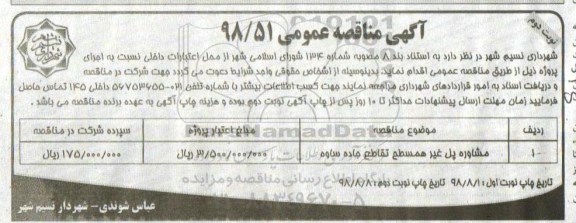 نوبت دوم
آگهی مناقصه عمومی ۹۸/۵۱
شهرداری نسیم شهر در نظر دارد به استناد بند ۸ مصوبه شماره ۱۳۴ شورای اسلامی شهر از محل اعتبارات داخلی نسبت به اجرای
پروژه ذیل از طریق مناقصه عمومی اقدام نماید. بدینوسیله از اشخاص حقوقی واجد شرایط دعوت می گردد جهت شرکت در مناقصه
و دریافت اسناد به امور قراردادهای شهرداری مراجعه نمایند جهت کسب اطلاعات بیشتر با شماره تلفن ۰۲۱-۵۶۷۵۳۶۵۵ داخلی ۱۴۵ تماس حاصل
فرمایید زمان مهلت ارسال پیشنهادات حداکثر تا ۱۰ روز پس از چاپ آگهی نوبت دوم بوده و هزینه چاپ آگهی به عهده برنده مناقصه می باشد.
ردیف موضوع مناقصه مبلغ اعتبار پروژه سپرده شرکت در مناقصه
۱- مشاوره پل غیر همسطح تقاطع جاده ساوه ۳/۵۰۰/۰۰۰/۰۰۰ ریال ۱۷۵/۰۰۰/۰۰۰ ریال
تاریخ چاپ نوبت اول: ۹۸/۸/۱ تاریخ چاپ نوبت دوم: ۹۸/۸/۸
عباس شوندی - شهردار نسیم شهر